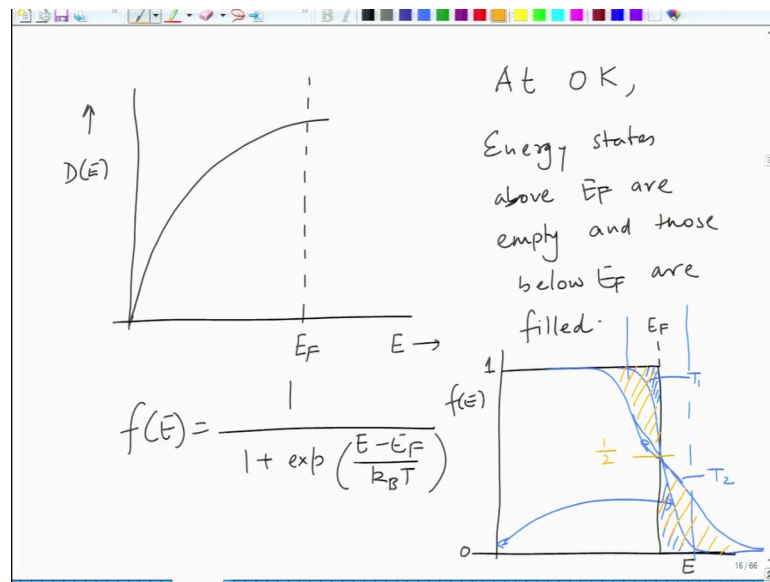 At 0K,
Energy states
above EF are
empty and those
below EF are
filled.
↑
D(E)
EF
E →
f(E) = 1 / (1 + exp((E-EF)/(kBT)))
EF
1
T1
f(E)
1/2
T2
0
E
16 / 66